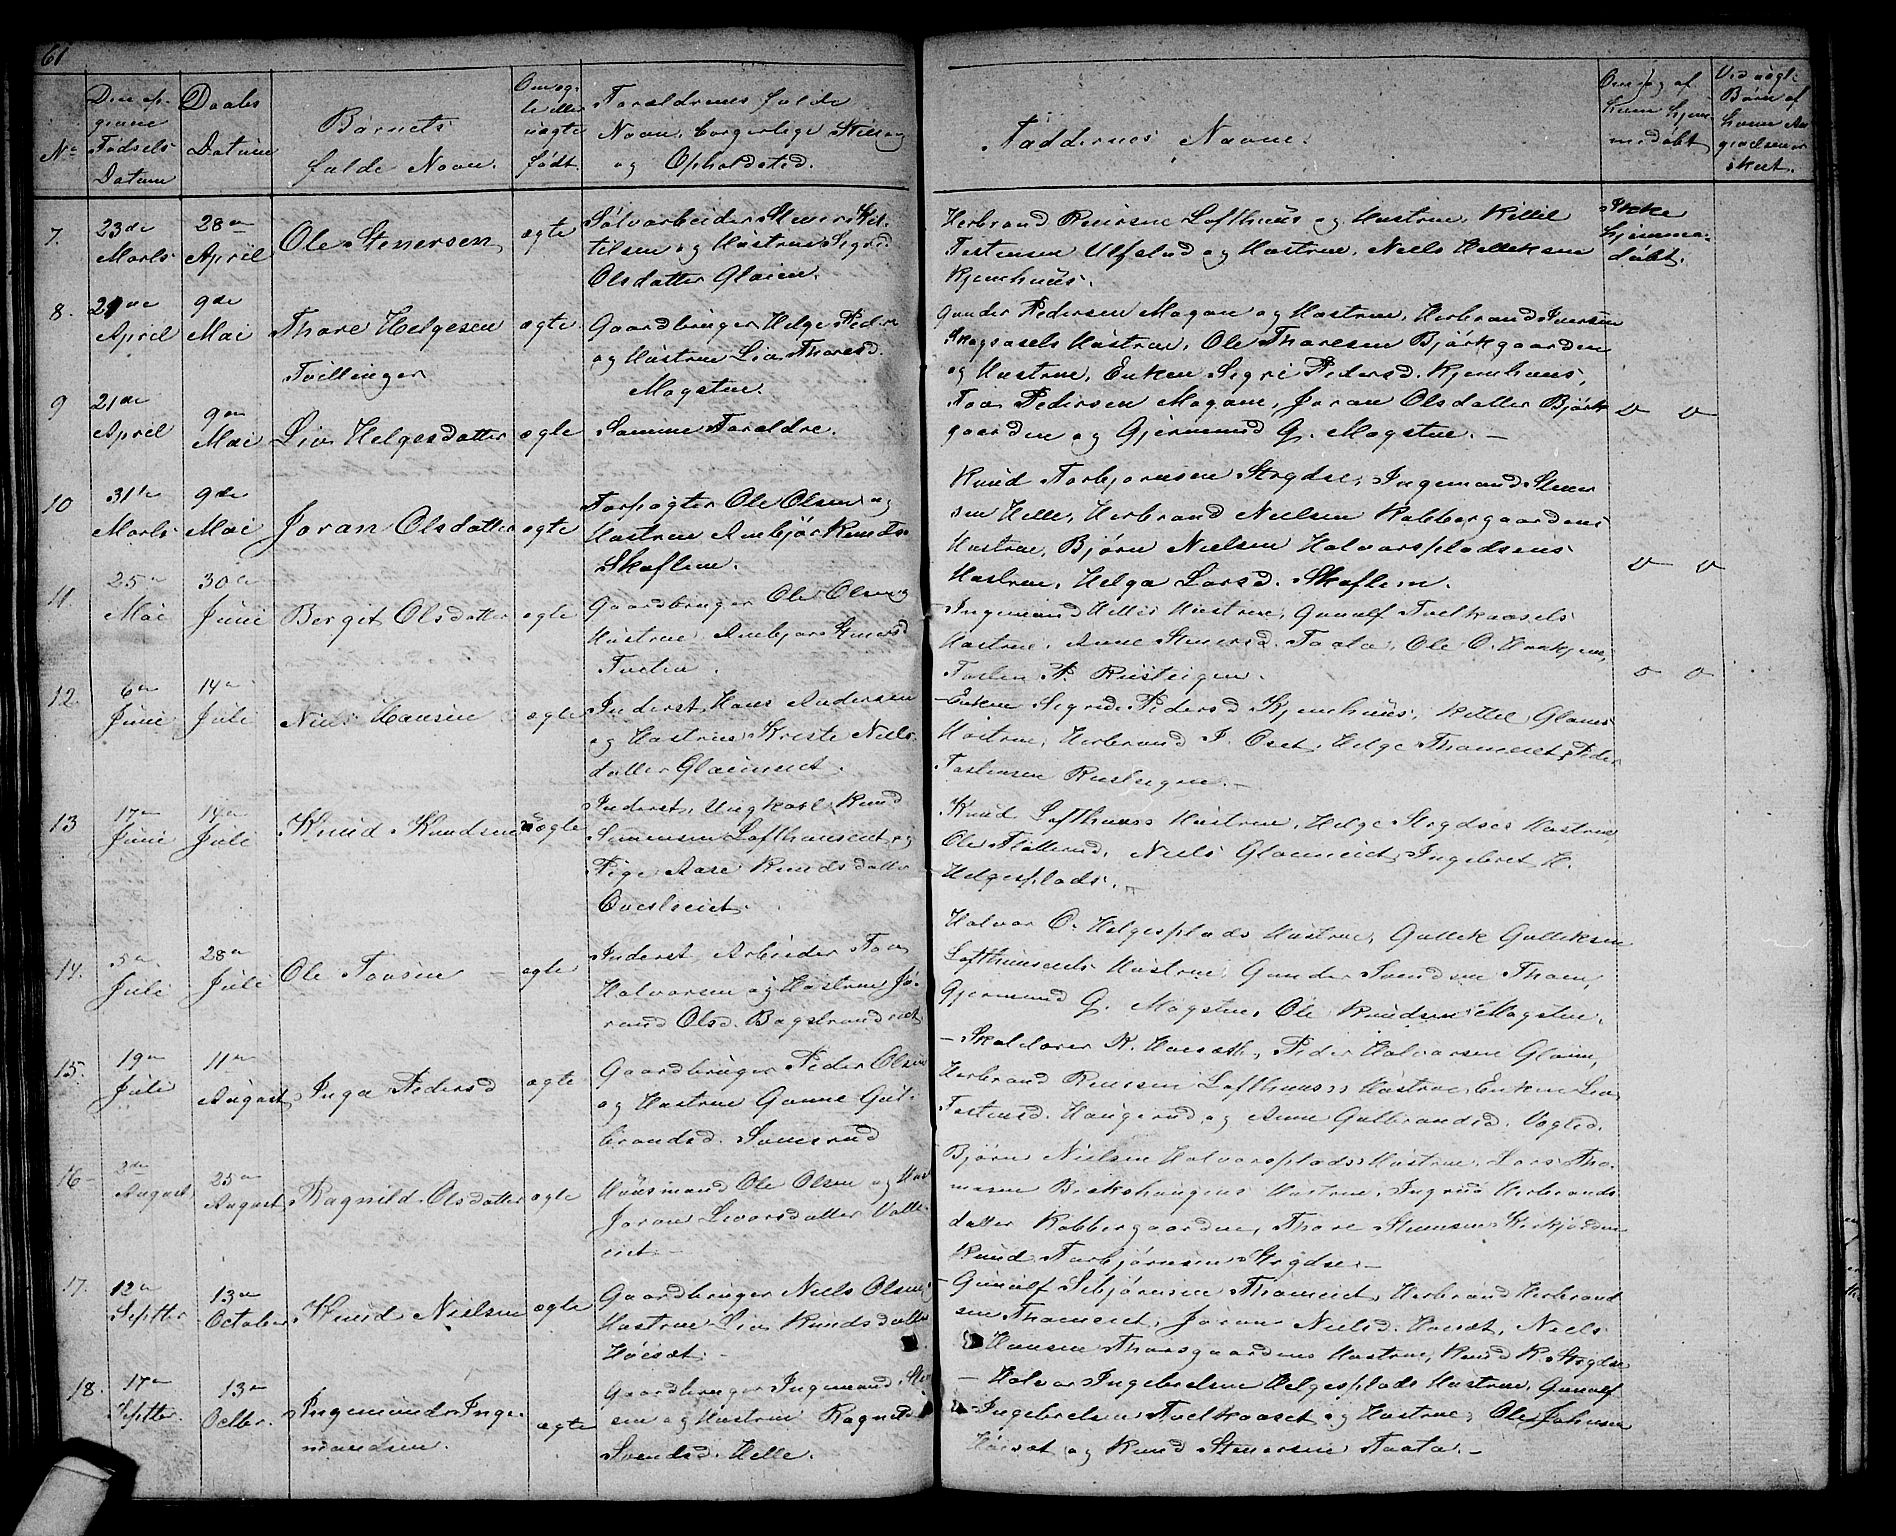 61
No
Den op-
givne
Fødsels
Datum
Daabs
Datum
Børnets
fulde Navn.
Om æg-
te eller
uægte
født.
Forældrenes fulde
Navn, borgerlige Stilling
og Opholdsted.
Faddernes Navne.
Om og af
hvem hjem-
medøbt
Ved uægte
Børn af
hvem An-
givelsen er
skeet.
7.
23de
Marts
28de
April
Ole Stenersen
ægte
Sølvarbeider Stener Ket-
tilsen og Hustrue Sigrid
Olsdatter Glaim.
Herbrand Lofthuus og Hustrue, Kittil
Torstensen Ulfslud og Hustrue, Niels Helleksen
Kjemhuus.
Ikke
hjemme-
døbt.
8.
April
9de
Mai
Thore Helgesen
Tvillinger
ægte
Gaardbruger Helge Peders.
og Hustrue Liv Thoresd.
Mogstue.
Gunder Pedersen Mogan og Hustrue, Herbrand Iversen
Hustrue, Ole Thoresen Bjørkgaarden
og Hustrue, Enken Sigri Pedersd. Kjemhuus,
9
21de
April
9de
Mai
Liv Helgesdatter
ægte
Samme Forældre.
Tov Pedersen Mogane, Joran Olsdatter Bjørk-
gaarden og Gjermund G. Mogstue. –
10
31te
Marts
9de
Mai
Joran Olsdatter
ægte
Forpagter Ole Olsen og
Hustrue Ambjør Knudsd.
Skaflem.
Knud Torbjørnsen Strgdse, Ingemund Stener-
sen Helle, Herbrand Nielsen Kobbergaardens
Hustrue, Bjørn Nielsen Halvorspladsens
Hustrue, Helga Larsd. Skaflem.
11.
25de
Mai
30te
Juni
Bergit Olsdatter
ægte
Gaardbruger Ole Olsen og
Hustrue Ambjør Stenersd.
Ingemund Helles Hustrue, Gunulf Tvetkaasels
Hustrue, Anne Stenersd. Taata, Ole O.
Rusteigen.
12.
6te
Juni
14de
Juli
Niels Hansen
ægte
Inderst Hans Andersen
og Hustrue Kirste Niels-
datter Glaimeiet.
Enken Sigrid Pedersd Kjemhuus, Kittel Glaims
Hustrue, Herbrand I. Oset, Helge Thameiet, Peder
Torstensen Rusteigen. –
13
17de
Juni
14de
Juli
Knud Knudsen
uægte
Inderst, Ungkarl Knud
Simensen Lofthuuseiet og
Pige Aase Knudsdatter
Knud Lofthuuses Hustrue, Helge Strgdses Hustrue,
Ole Flatterud, Niels Glaimeiet, Ingebret H.
Helgesplads. –
14.
5te
Juli
28de
Juli
Ole Tovsen
ægte
Inderst, Arbeider Tov
Halvorsen og Hustrue Jo-
rand Olsd. Bagstrandeiet
Halvor O. Helgesplads Hustrue, Gullik Gulliksen
Lofthuuseiets Hustrue, Gunder Svendsen Tham,
Gjermund G. Mogstue, Ole Knudsen Mogstue.
15.
19de
Juli
11te
August
Inga Pedersd
ægte
Gaardbruger Peder Olsen
og Hustrue Gunne Gul-
brandsd. Somerud
– Skolelærer K. Hovsæth, Peder Halvorsen Glaim,
Herbrand Lofthuuses Hustrue, Enken Liv
Torstensd. Haugerud og Anne Gulbrandsd. Vogled.
16
2den
August
25de
August
Ragnild Olsdatter
ægte
Huusmand Ole Olsen og Hust.
Joran Livorsdatter
eiet. –
Bjørn Nielsen Halvorsplads Hustrue, Lars Tho-
masen Hustrue, Ingrid Herbrands-
datter Kobbergaarden, Thore
Knud Torbjørnsen Strgdse. –
17.
12te
Septbr
13de
October
Knud Nielsen
ægte
Gaardbruger Niels Olsen,
Hustrue Liv Knudsdatter
Høisæt. –
Gunulf Sebjørnsen Thameiet, Herbrand Herbrand-
sen Thameiet, Joran Nielsd. Høisæt, Niels
Hansen Thorsgaardens Hustrue, Knud K. Strgdse
18.
17de
Septbr.
13de
Octbr.
Ingemund Inge-
mundsen.
ægte
Gaardbruger Ingemund Stener-
sen og Hustrue Ragnild
Svendsd. Helle.
– Halvor Ingebretsen Helgesplads Hustrue, Gunulf
Ingebretsen Tvetkaaset og Hustrue, Ole Johnsen
Høisæt og Knud Stenersen Taata. –